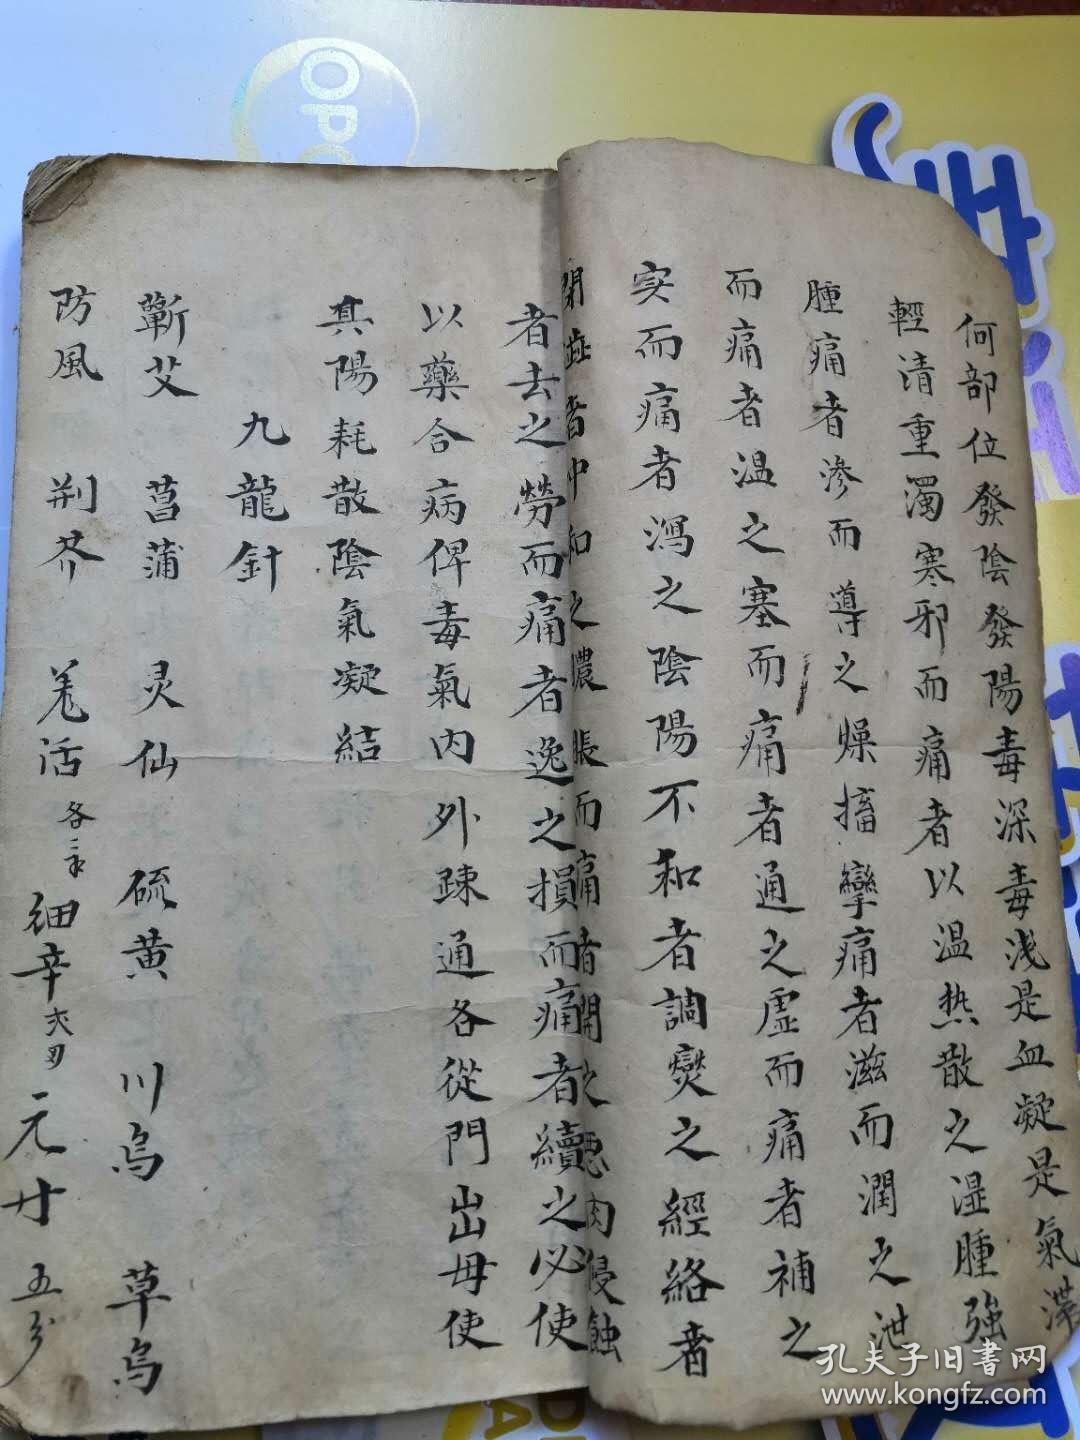 何部位發陰發陽毒深毒浅是血凝是氣滞
輕清重濁寒邪而痛者以温热散之湿腫強
腫痛者滲而導之燥搐攣痛者滋而潤之泄
而痛者温之塞而痛者通之虛而痛者補之
实而痛者瀉之陰陽不和者調爕之經絡者
閉澁者冲和之膿脹而痛者開之惡肉侵蝕
者去之勞而痛者逸之損而痛者續之必使
以藥合病俾毒氣内外疎通各從門出毋使
真陽耗散陰氣凝結
九龍針
蘄艾 菖蒲 灵仙 硫黄 川烏 草烏
防風 荆芥 羗活 各 細辛 元寸 五分
OPO
孔夫子旧書网
www.kongfz.com